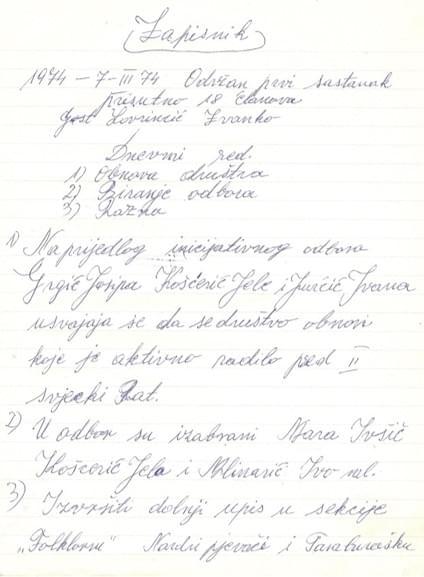 Zapisnik
1974 - 7-III 74 Održan prvi sastanak
Prisutno 18 članova
Gost Lovrinčić Zvonko
Dnevni red.
1) Obnova društva
2) Biranje odbora
3) Razno
1) Na prijedlog inicijativnog odbora
Grgić Josipa Košćerić Jele i Jurčić Ivana
usvajaja se da se društvo obnovi
koje je aktivno radilo pred II
svjecki Rat.
2) U odbor su izabrani Mara Ivšić
Košcerić Jela i Mlinarić Ivo ml.
3) Izvršiti dolnji upis u sekcije
„Folklornu" Narodni pjevači i Tamburašku